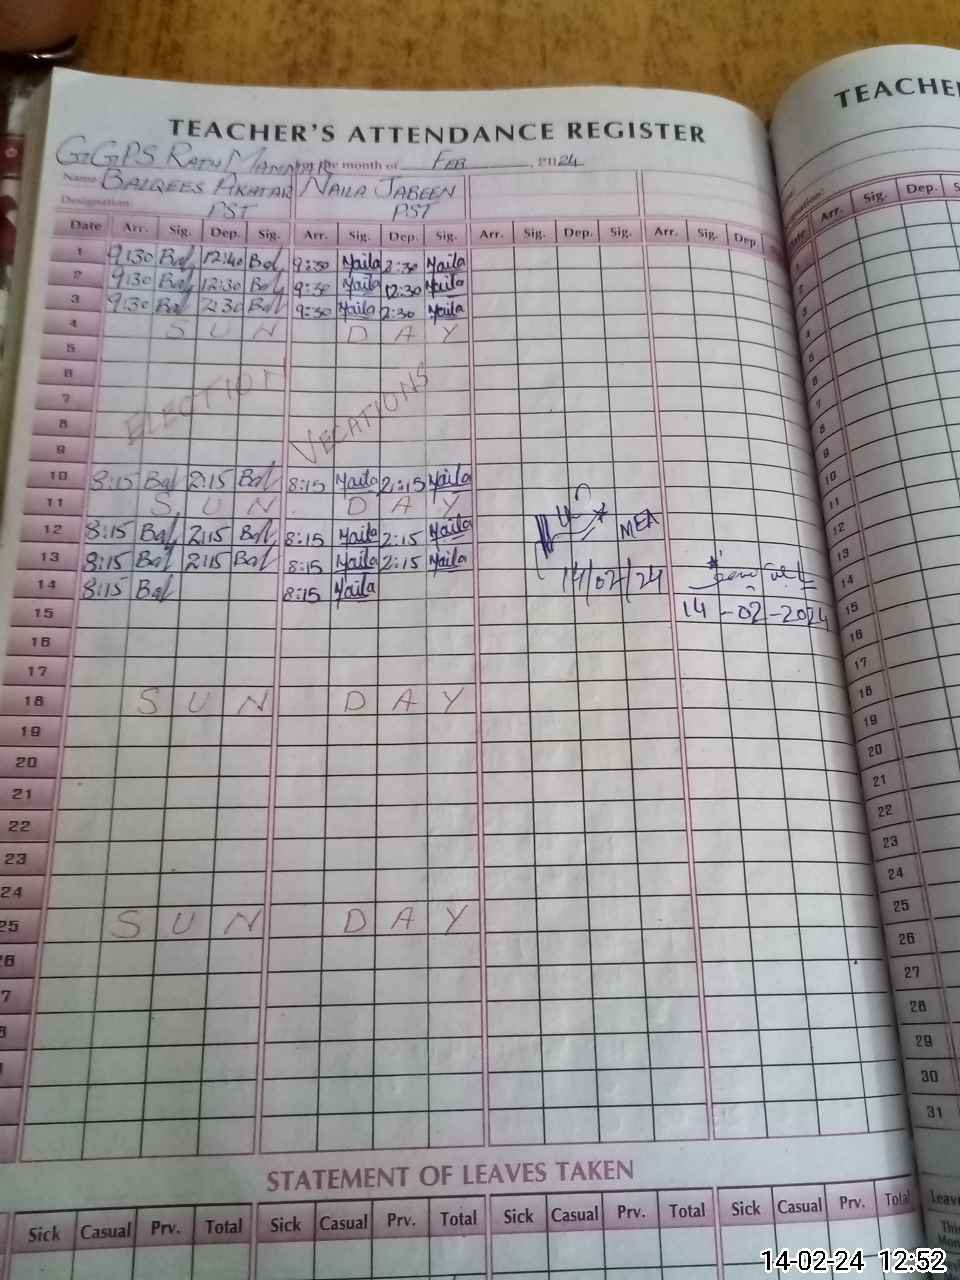 TEACHER'S ATTENDANCE REGISTER
TEACHE
GGPS RATU for the month of FEB, 2024
Name BALQEES AKATAR NAILA JABEEN
Designation PST PST
Date Arr. Sig. Dep. Sig. Arr. Sig. Dep. Sig. Arr. Sig. Dep. Sig. Arr. Sig. Dep.
Date Arr. Sig. Dep. S
1 9:30 Bal 12:40 Bal 9:30 Naila 2:30 Naila
2 9:30 Bal 12:30 Bal 9:30 Naila 12:30 Naila
3 9:30 Bal 2:30 Bal 9:30 Naila 2:30 Naila
4 S U N D A Y
5
6
7 ELECTION VECATIONS
8
9
10 8:15 Bal 2:15 Bal 8:15 Naila 2:15 Naila
11 S U N D A Y
12 8:15 Bal 2:15 Bal 8:15 Naila 2:15 Naila MEA
13 8:15 Bal 2:15 Bal 8:15 Naila 2:15 Naila
14 8:15 Bal 8:15 Naila 14/02/24
15 14-02-2024
16
17
18 S U N D A Y
19
20
21
22
23
24
25 S U N D A Y
26
7
8
1
2
3
4
5
6
7
8
9
10
11
12
13
14
15
16
17
18
19
20
21
22
23
24
25
26
27
28
29
30
31
STATEMENT OF LEAVES TAKEN
Sick Casual Prv. Total Sick Casual Prv. Total Sick Casual Prv. Total Sick Casual Prv. Total
Leave
Thi
Mon
14-02-24 12:52